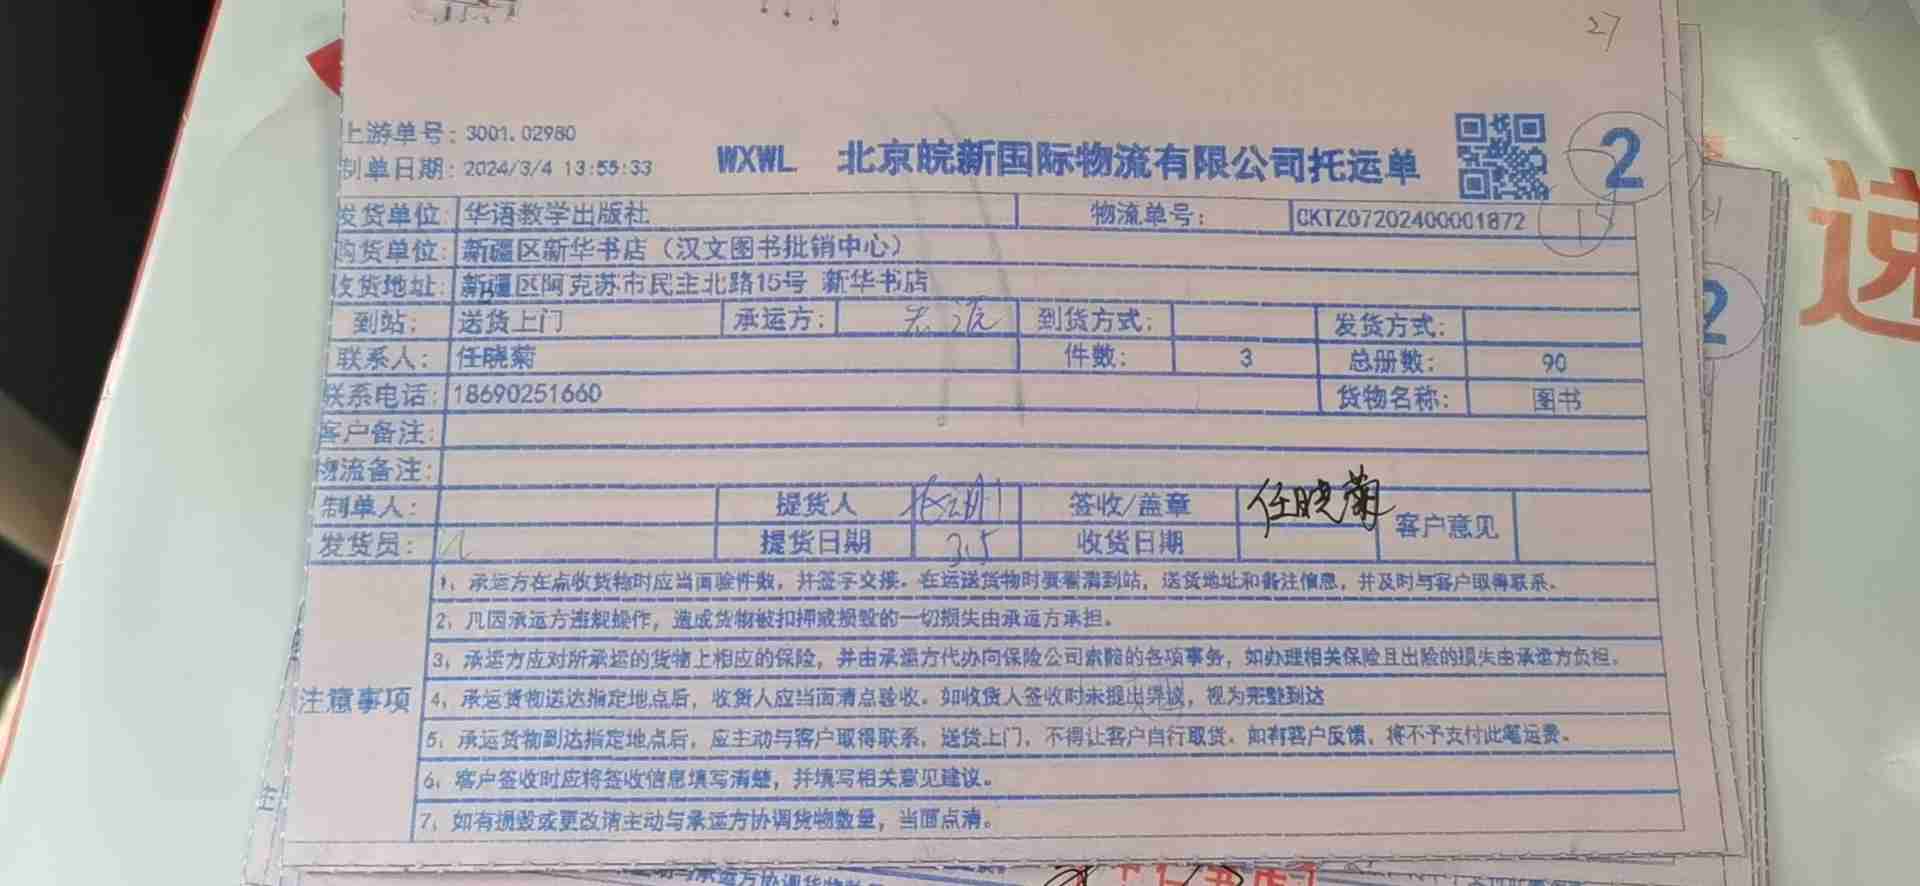 27
上游单号: 3001.02980
制单日期: 2024/3/4 13:55:33
WXWL 北京皖新国际物流有限公司托运单
2
发货单位: 华语教学出版社 物流单号: CKTZ07202400001872
购货单位: 新疆区新华书店（汉文图书批销中心）
收货地址: 新疆区阿克苏市民主北路15号 新华书店
到站: 送货上门 承运方: 到货方式: 发货方式:
联系人: 任晓菊 件数: 3 总册数: 90
联系电话: 18690251660 货物名称: 图书
客户备注:
物流备注:
制单人: 提货人 签收/盖章 任晓菊 客户意见
发货员: 提货日期 3.5 收货日期
注意事项
1、承运方在点收货物时应当面验件数，并签字交接。在运送货物时要看清到站，送货地址和备注信息，并及时与客户取得联系。
2、凡因承运方违规操作，造成货物被扣押或损毁的一切损失由承运方承担。
3、承运方应对所承运的货物上相应的保险，并由承运方代办向保险公司索赔的各项事务，如办理相关保险且出险的损失由承运方负担。
4、承运货物送达指定地点后，收货人应当面清点验收。如收货人签收时未提出异议，视为完整到达
5、承运货物到达指定地点后，应主动与客户取得联系，送货上门，不得让客户自行取货。如有客户反馈，将不予支付此笔运费。
6、客户签收时应将签收信息填写清楚，并填写相关意见建议。
7、如有损毁或更改请主动与承运方协调货物数量，当面点清。
2
速